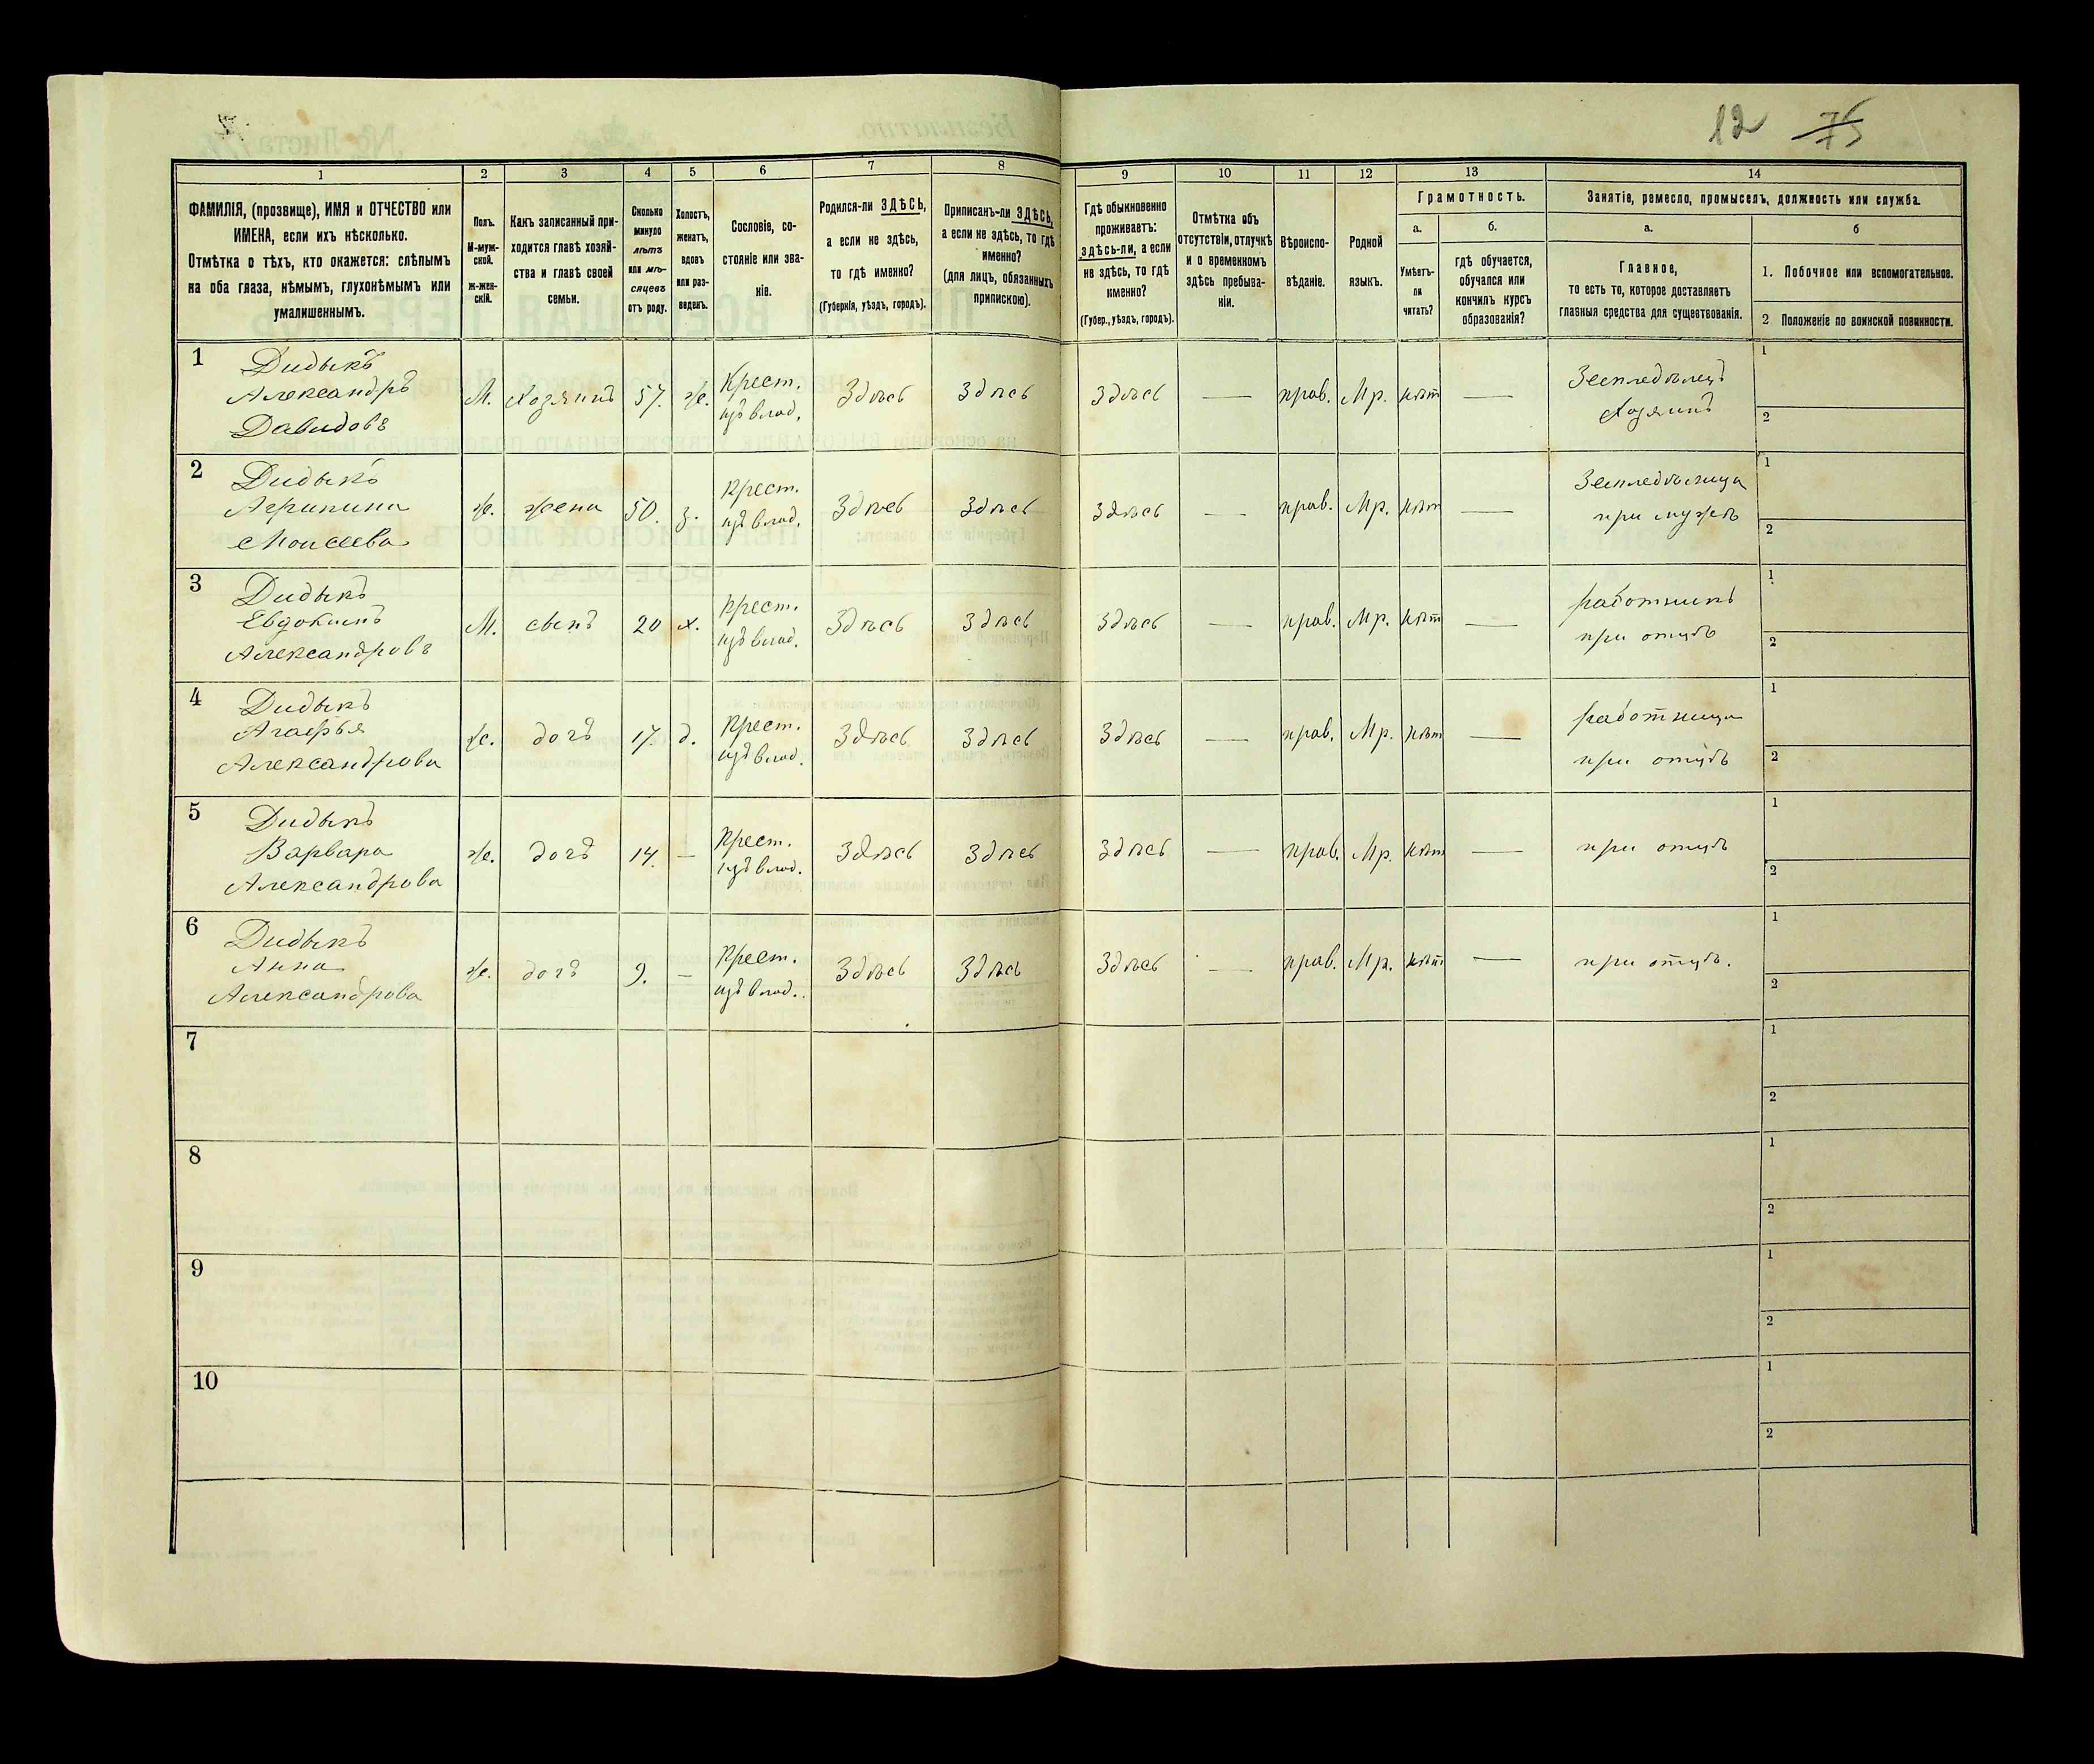 12 75
1 2 3 4 5 6 7 8 9 10 11 12 13 14
ФАМИЛІЯ, (прозвище), ИМЯ и ОТЧЕСТВО или
ИМЕНА, если ихъ нѣсколько.
Отмѣтка о тѣхъ, кто окажется: слѣпымъ
на оба глаза, нѣмымъ, глухонѣмымъ или
умалишеннымъ.
Полъ.
М-муж-
ской.
ж-жен-
скій.
Какъ записанный при-
ходится главѣ хозяй-
ства и главѣ своей
семьи.
Сколько
минуло
лѣтъ
или мѣ-
сяцевъ
отъ роду.
Холостъ,
женатъ,
вдовъ
или раз-
веденъ.
Сословіе, со-
стояніе или зва-
ніе.
Родился-ли ЗДѢСЬ,
а если не здѣсь,
то гдѣ именно?
(Губернія, уѣздъ, городъ).
Приписанъ-ли ЗДѢСЬ,
а если не здѣсь, то гдѣ
именно?
(для лицъ, обязанныхъ
припискою).
Гдѣ обыкновенно
проживаетъ:
здѣсь-ли, а если
не здѣсь, то гдѣ
именно?
(Губер., уѣздъ, городъ).
Отмѣтка объ
отсутствіи, отлучкѣ
и о временномъ
здѣсь пребыва-
ніи.
Вѣроиспо-
вѣданіе.
Родной
языкъ.
Грамотность.
а.
Умѣетъ-
ли
читать?
б.
гдѣ обучается,
обучался или
кончилъ курсъ
образованія?
Занятіе, ремесло, промыселъ, должность или служба.
а.
Главное,
то есть то, которое доставляетъ
главныя средства для существованія.
б
1. Побочное или вспомогательное.
2 Положеніе по воинской повинности.
1 Дидыкъ
Александръ
Давидовъ
М. Хозяинъ 57. ж. Крест.
изъ влад. Здѣсь Здѣсь Здѣсь — прав. Мр. нѣт — Земледѣлецъ
Хозяинъ
1
2
2 Дидыкъ
Агрипина
Моисеева
ж. жена 50. з. Крест.
изъ влад. Здѣсь Здѣсь Здѣсь — прав. Мр. нѣт — Земледѣлица
при мужѣ
1
2
3 Дидыкъ
Евдокимъ
Александровъ
М. сынъ 20 х. Крест.
изъ влад. Здѣсь Здѣсь Здѣсь — прав. Мр. нѣт — работникъ
при отцѣ
1
2
4 Дидыкъ
Агафья
Александрова
ж. дочь 17. д. Крест.
изъ влад. Здѣсь Здѣсь Здѣсь — прав. Мр. нѣт — работница
при отцѣ
1
2
5 Дидыкъ
Варвара
Александрова
ж. дочь 14. — Крест.
изъ влад. Здѣсь Здѣсь Здѣсь — прав. Мр. нѣт — при отцѣ
1
2
6 Дидыкъ
Анна
Александрова
ж. дочь 9. — Крест.
изъ влад. Здѣсь Здѣсь Здѣсь — прав. Мр. нѣт — при отцѣ.
1
2
7
1
2
8
1
2
9
1
2
10
1
2